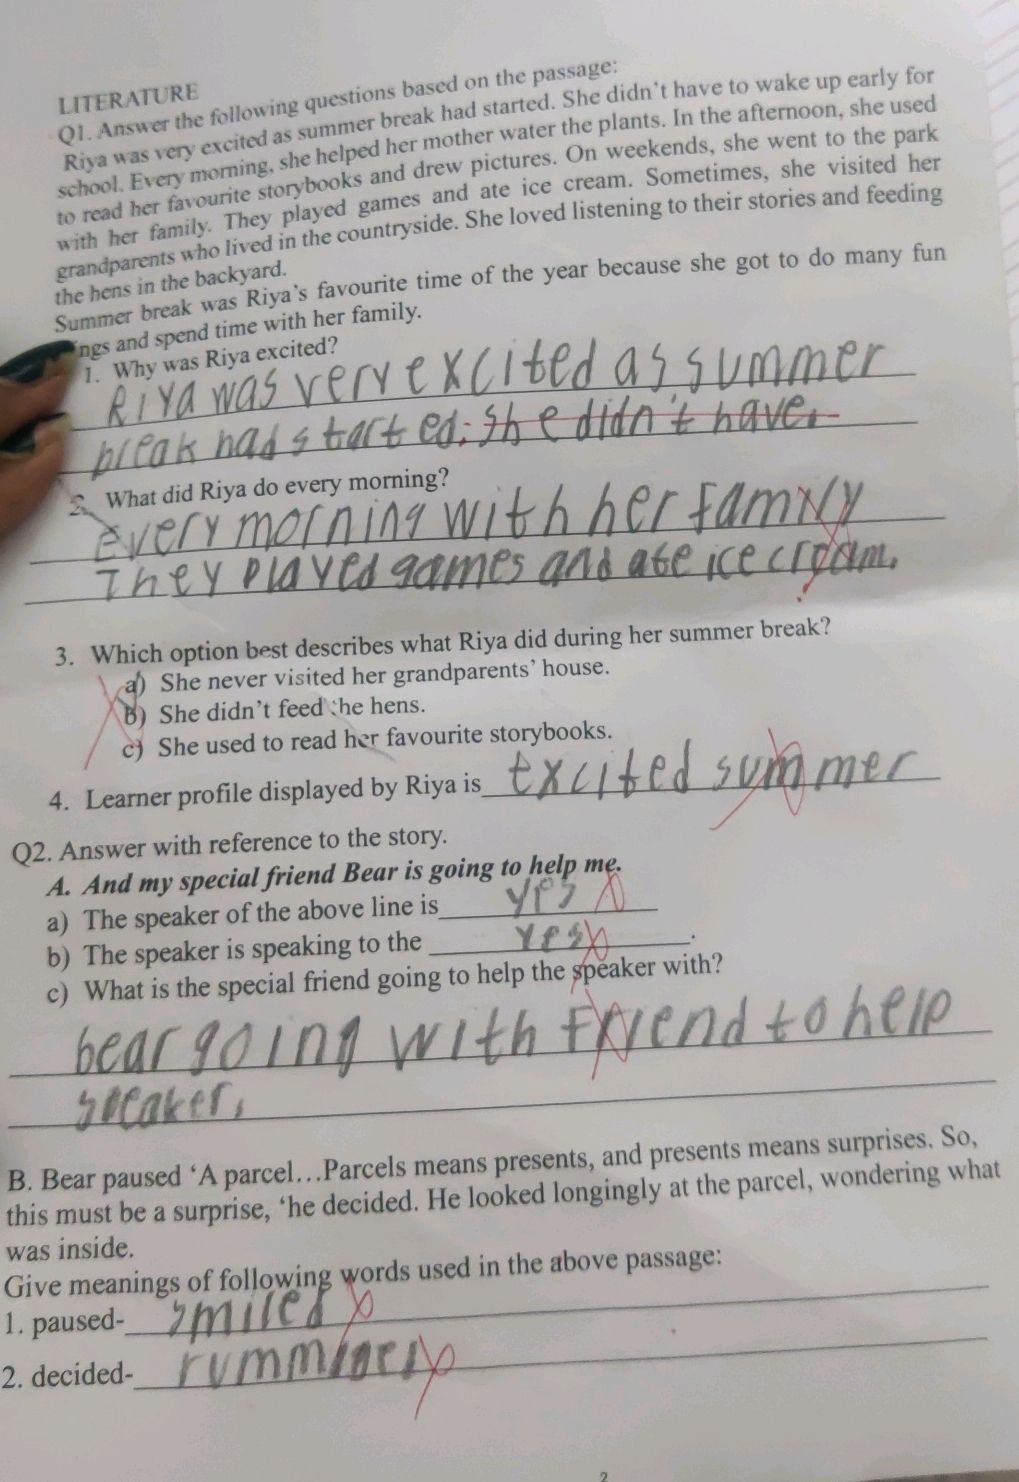 LITERATURE
Q1. Answer the following questions based on the passage:
Riya was very excited as summer break had started. She didn't have to wake up early for
school. Every morning, she helped her mother water the plants. In the afternoon, she used
to read her favourite storybooks and drew pictures. On weekends, she went to the park
with her family. They played games and ate ice cream. Sometimes, she visited her
grandparents who lived in the countryside. She loved listening to their stories and feeding
the hens in the backyard.
Summer break was Riya's favourite time of the year because she got to do many fun
ngs and spend time with her family.
1. Why was Riya excited?
Riya was very excited as summer
break had started. She didn't have.
2. What did Riya do every morning?
Every morning with her family
They played games and ate ice cream.
3. Which option best describes what Riya did during her summer break?
a) She never visited her grandparents' house.
b) She didn't feed the hens.
c) She used to read her favourite storybooks.
4. Learner profile displayed by Riya is excited summer
Q2. Answer with reference to the story.
A. And my special friend Bear is going to help me.
a) The speaker of the above line is yes
b) The speaker is speaking to the yes.
c) What is the special friend going to help the speaker with?
bear going with friend to help
speaker.
B. Bear paused 'A parcel…Parcels means presents, and presents means surprises. So,
this must be a surprise, 'he decided. He looked longingly at the parcel, wondering what
was inside.
Give meanings of following words used in the above passage:
1. paused- smiled
2. decided-
2